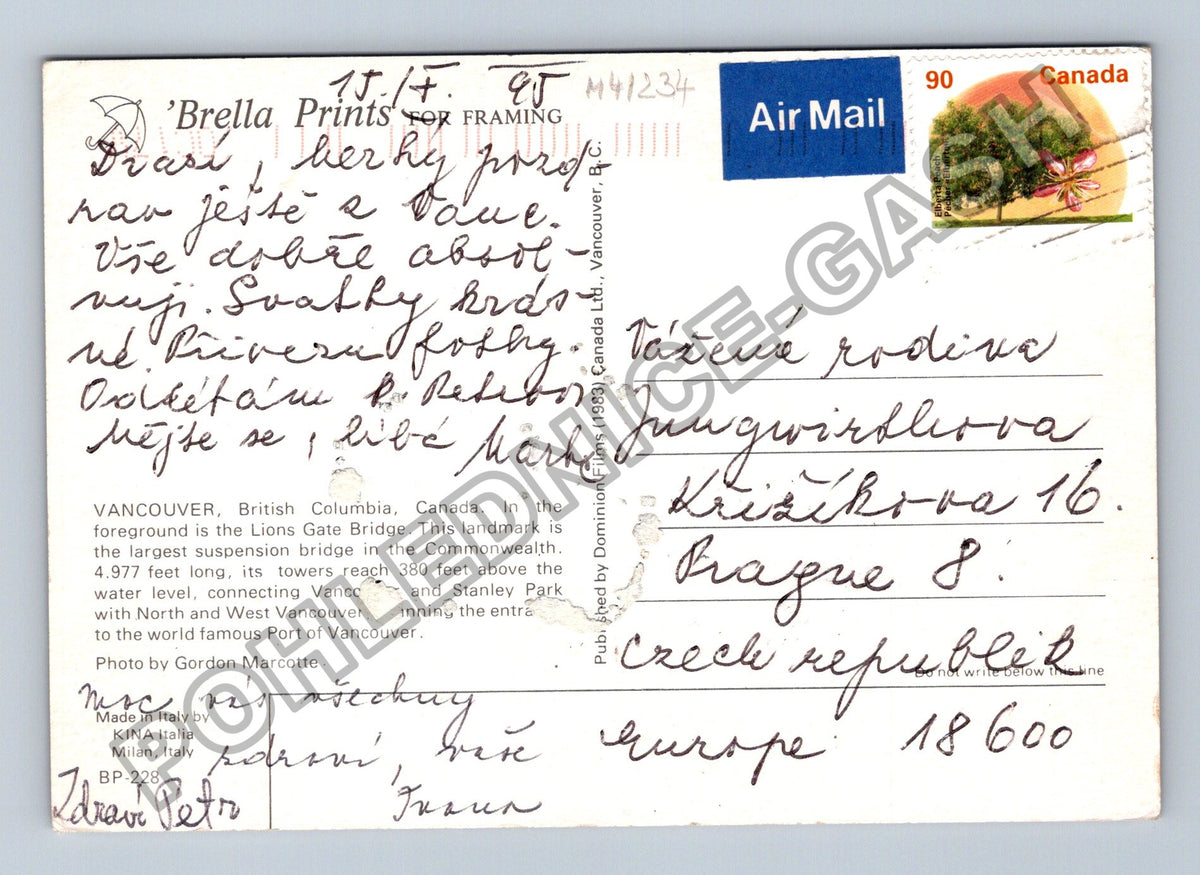 15./X. 95
M41234
'Brella Prints FOR FRAMING
Drazí, hezký pozd-
rav ještě z Vanc.
Vše dobře absol-
vuji. Svatby krás-
né. Přivezu fotky.
Odlétám
Mějte se, líbá
VANCOUVER, British Columbia, Canada. In the
foreground is the Lions Gate Bridge. This landmark is
the largest suspension bridge in the Commonwealth.
4.977 feet long, its towers reach 380 feet above the
water level, connecting and Stanley Park
with North and West Vancouver
to the world famous Port of Vancouver.
Photo by Gordon Marcotte.
moc vás všechny
zdraví, vaše
Ivana
Made in Italy by
KINA Italia
Milan, Italy
BP-228
Zdraví Petr
Published by Dominion Films (1983) Canada Ltd., Vancouver, B.C.
Air Mail
90 Canada
Elberta Peach
Vážená rodina
Jungwirthova
Křižíkova 16.
Prague 8.
Czech republik
Do not write below this line
Europe 18600
POHLEDNICE-GASH